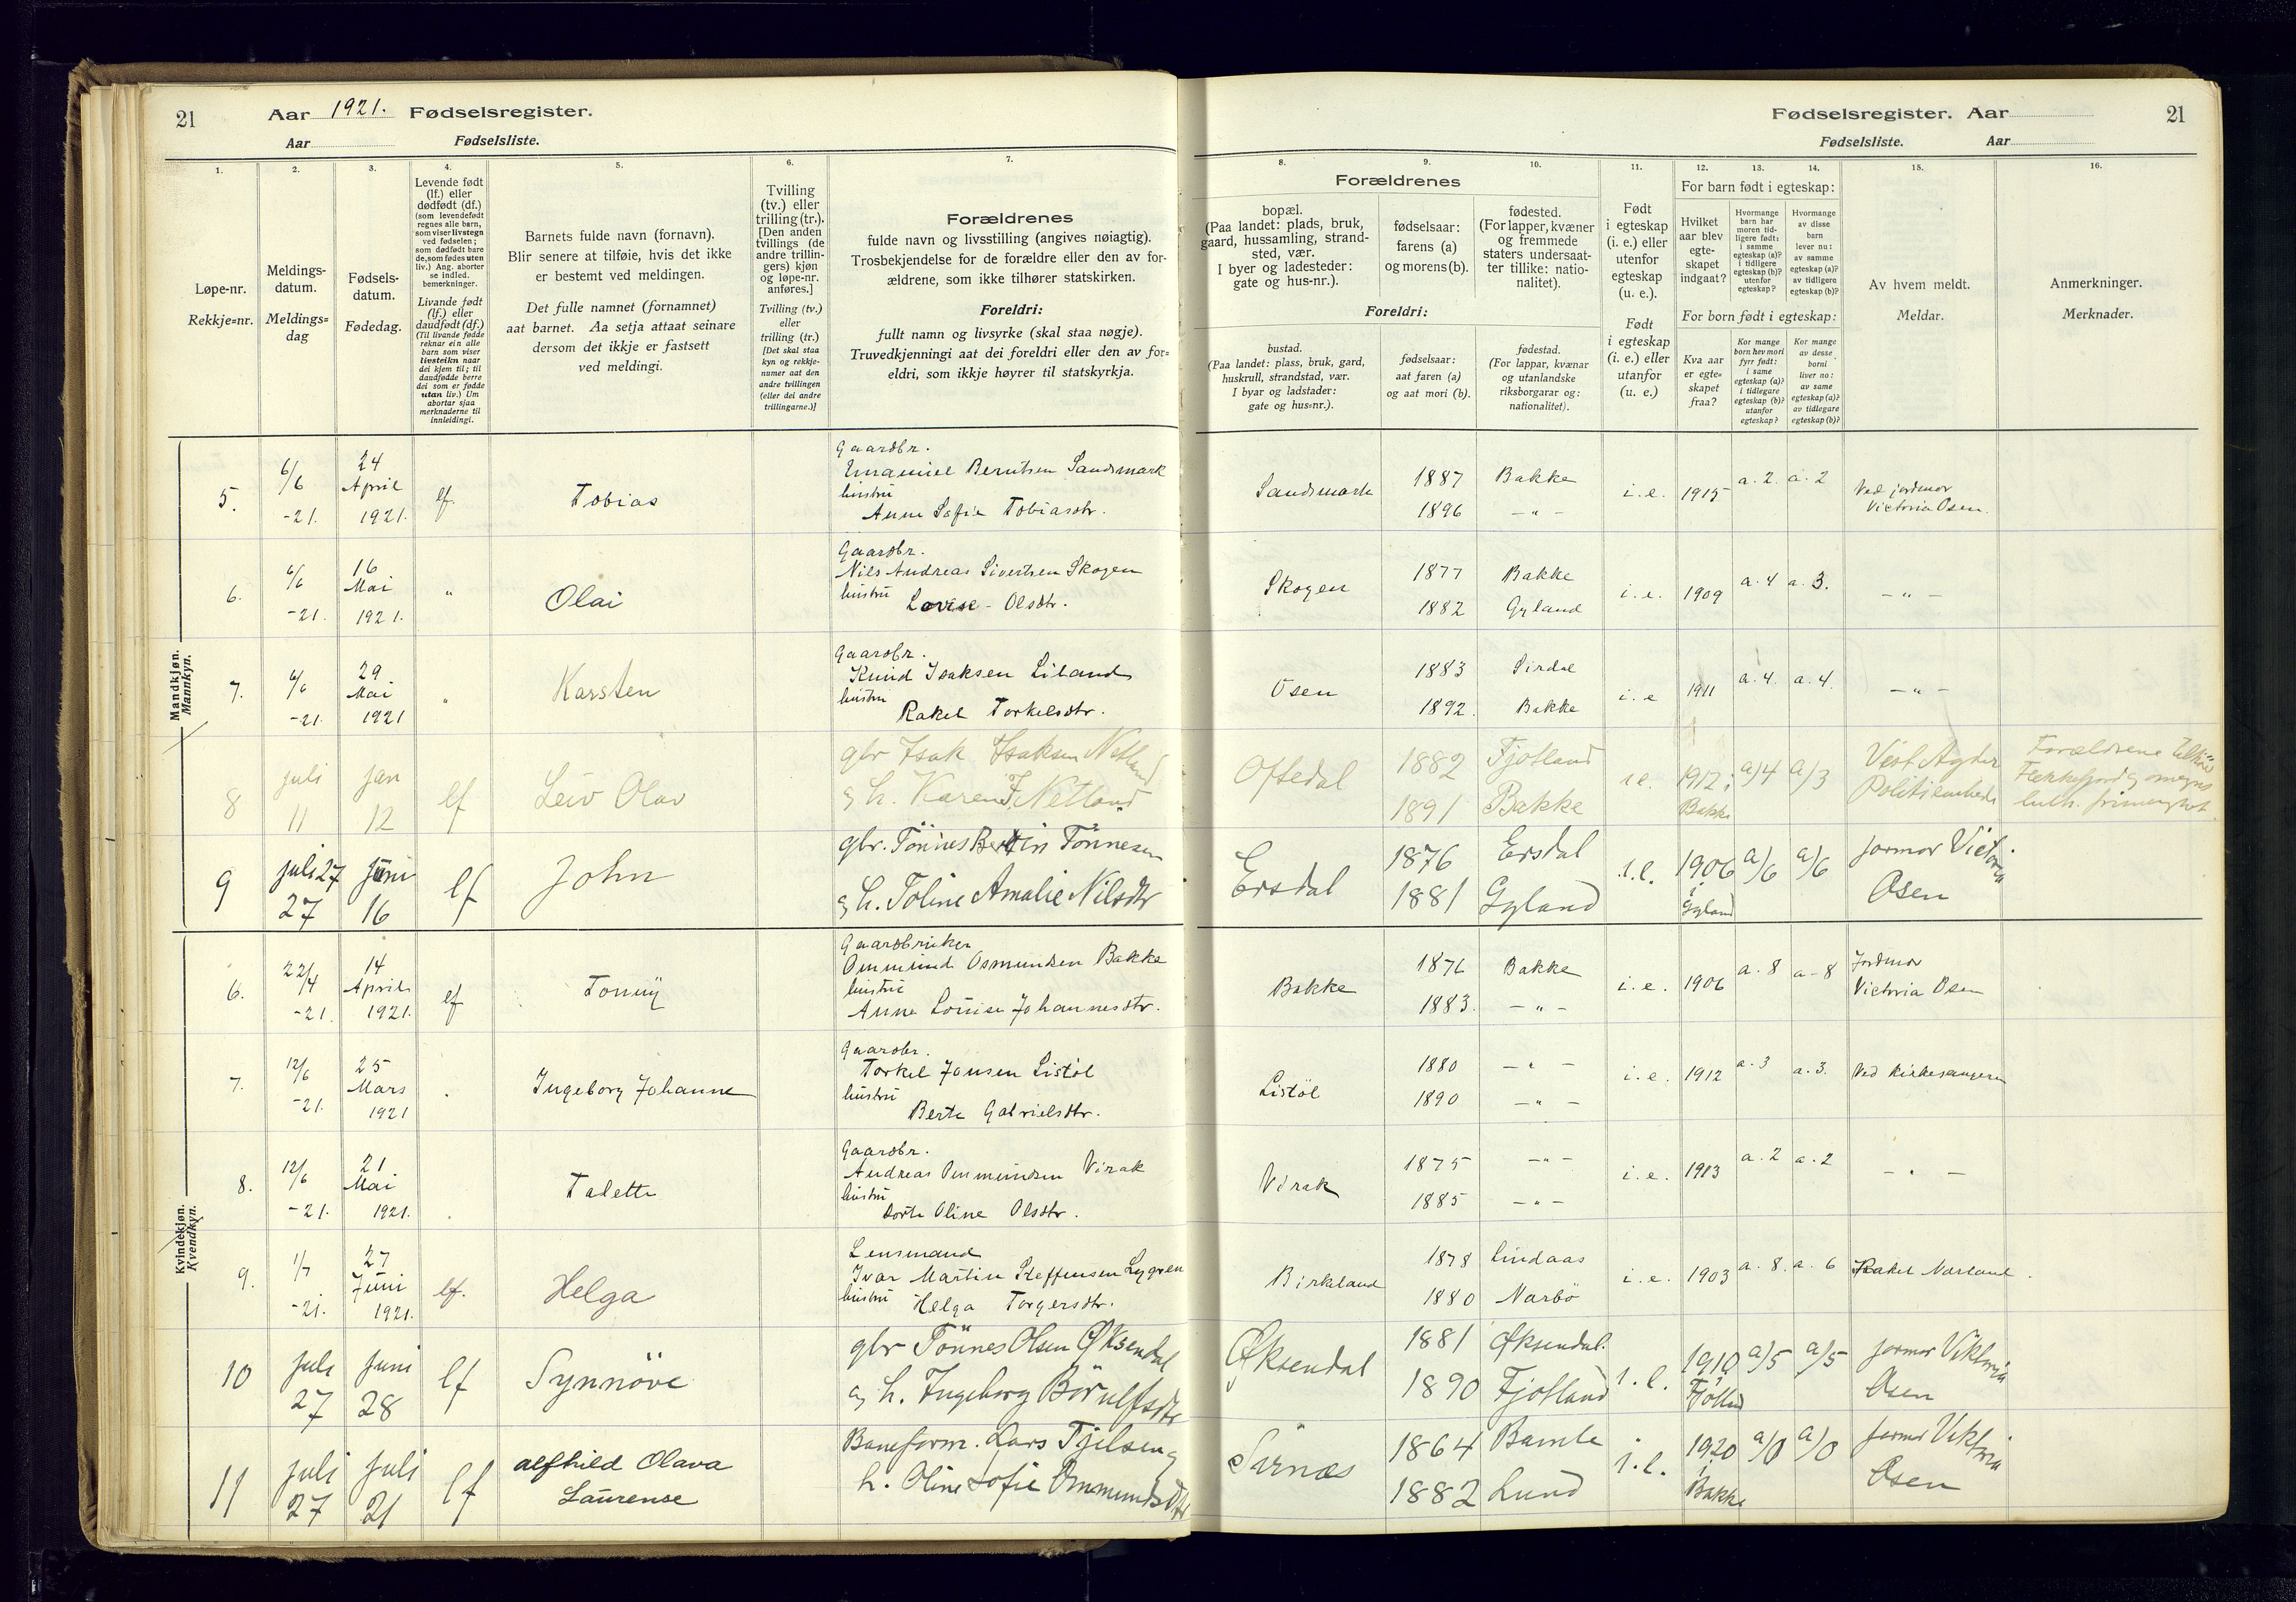 21
Aar 1921. Fødselsregister.
Aar Fødselsliste.
Fødselsregister. Aar
21
Fødselsliste. Aar
1.
2.
3.
4.
5.
6.
7.
8.
9.
10.
11.
12.
13.
14.
15.
16.
Løpe-nr.
Rekkje=nr.
Meldings-
datum.
Meldings=
dag
Fødsels-
datum.
Fødedag.
Levende født
(lf.) eller
dødfødt (df.)
(som levendefødt
regnes alle barn,
som viser livstegn
ved fødselen;
som dødfødt bare
de, som fødes uten
liv.) Ang. aborter
se indled.
bemerkninger.
Livande født
(lf.) eller
daudfødt (df.)
(Til livande fødde
reknar ein alle
barn som viser
livsteikn naar
dei kjem til; til
daudfødde berre
dei som er fødde
utan liv.) Um
abortar sjaa
merknaderne til
innleidingi.
Barnets fulde navn (fornavn).
Blir senere at tilføie, hvis det ikke
er bestemt ved meldingen.
Det fulle namnet (fornamnet)
aat barnet. Aa setja attaat seinare
dersom det ikkje er fastsett
ved meldingi.
Tvilling
(tv.) eller
trilling (tr.).
[Den anden
tvillings (de
andre trillin-
gers) kjøn
og løpe-nr.
anføres.]
Tvilling (tv.)
eller
trilling (tr.)
[Det skal staa
kyn og rekkje-
numer aat den
andre tvillingen
(eller dei andre
trillingarne.)]
Forældrenes
fulde navn og livsstilling (angives nøiagtig).
Trosbekjendelse for de forældre eller den av for-
ældrene, som ikke tilhører statskirken.
Foreldri:
fullt namn og livsyrke (skal staa nøgje).
Truvedkjenningi aat dei foreldri eller den av for=
eldri, som ikkje høyrer til statskyrkja.
Forældrenes
bopæl.
(Paa landet: plads, bruk,
gaard, hussamling, strand-
sted, vær.
I byer og ladesteder:
gate og hus-nr.).
fødselsaar:
farens (a)
og morens (b).
fødested.
(For lapper, kvæner
og fremmede
staters undersaat-
ter tillike: natio-
nalitet).
Foreldri:
bustad.
(Paa landet: plass, bruk, gard,
huskrull, strandstad, vær.
I byar og ladstader:
gate og hus=nr.).
fødselsaar:
aat faren (a)
og aat mori (b).
fødestad.
(For lappar, kvænar
og utanlandske
riksborgarar og:
nationalitet).
Født
i egteskap
(i. e.) eller
utenfor
egteskap
(u. e.).
Født
i egteskap
(i. e.) eller
utanfor
(u. e.)
For barn født i egteskap:
Hvilket
aar blev
egte-
skapet
indgaat?
Hvormange
barn har
moren tid-
ligere født:
i samme
egteskap (a)?
i tidligere
egteskap (b)?
utenfor
egteskap?
Hvormange
av disse
barn
lever nu:
av samme
egteskap (a)?
av tidligere
egteskap (b)?
For born født i egteskap:
Kva aar
er egte=
skapet
fraa?
Kor mange
born hev mori
fyrr født:
i same
egteskap (a)?
i tidlegare
egteskap (b)?
utanfor
egteskap?
Kor mange
av desse
borni
liver no:
av same
egteskap (a)?
av tidlegare
egteskap (b)?
Av hvem meldt.
Meldar.
Anmerkninger.
Merknader.
Mandkjøn.
Mannkyn.
5. 6/6 -21. 24 April 1921. lf. Tobias
Gaardbr.
Emanuel Berntsen Sandsmark
hustru
Anne Sofie Tobiasdtr.
Sandsmark 1887 Bakke i. e. 1915 a. 2. a. 2 Ved jordmor
1896 — " — Victoria Osen.
6. 6/6 -21. 16 Mai 1921. " Olai
Gaardbr.
Nils Andreas Sivertsen Skogen
hustru
Lovise Olsdtr.
Skogen 1877 Bakke i. e. 1909 a. 4 a. 3. — " —
1882 Gyland
7. 6/6 -21. 29 Mai 1921 " Karsten
Gaardbr.
Knud Isaksen Liland
hustru
Rakel Torkelsdtr.
Osen 1883 Sirdal i. e 1911 a. 4. a. 4. — " —
1892. Bakke
8 juli 11 jan 12 lf Leiv Olav
gbr Isak Isaksen Netland
og h. Karen J Netland
Oftedal 1882 Fjotland i.e. 1912 i a/4 a/3 Vest Agder Forældrene tilhör
1891 Bakke Bakke Politiembede Flekkefjord og omegns
luth. frimenighet.
9 juli 27 27 juni 16 lf John
gbr. Tönnes Bertin Tönnesen
og h. Toline Amalie Nilsdtr
Ersdal 1876 Ersdal i.e. 1906 a/6 a/6 jormor Victoria
1881 Gyland i Gyland Osen
Kvindekjøn.
Kvendkyn.
6. 22/4 -21. 14 April 1921. lf Tonny
Gaardbruker
Ommund Osmundsen Bakke
hustru
Anne Louise Johannesdtr.
Bakke 1876 Bakke i. e. 1906 a. 8 a - 8 Jordmor
1883. — " — Victoria Osen
7. 12/6 -21. 25 Mars 1921 Ingeborg Johanne
Gaardbr.
Torkel Jansen Listöl
hustru
Berte Gabrielsdtr.
Listöl 1880 — " — i. e. 1912 a. 3 a. 3. Ved kirkesangeren
1890 — " —
8. 12/6 -21. 21 Mai 1921. Talette
Gaardbr.
Andreas Ommundsen Virak
hustru
Dorte Oline Olsdtr.
Virak 1875 — " — i. e. 1913 a. 2 a. 2 — " —
1885 — " —
9. 1/7 -21. 27 Juni 1921. lf. Helga
Lensmand
Ivar Martin Steffensen Lygren
hustru
Helga Torgersdtr.
Birkeland 1878 Lindaas i. e. 1903 a. 8. a. 6 Rakel Narland.
1880 Narbö
10 juli 27 juni 28 lf Synnöve
gbr Tönnes Olsen Øksendal
og h. Ingeborg Börulfsdtr
Øksendal 1881 Øksendal. i.e. 1910 a/5 a/5 jormor Viktoria
1890 Fjotland i Fjotland Osen
11 juli 27 juli 21 lf Alfhild Olava
Laurense
Baneform. Lars Tjelsen og
h. Oline Sofie Ommundsdtr
Sirnæs 1864 Bamle i.e. 1920 a/0 a/0 jormor Viktoria
1882 Lund i Bakke Osen